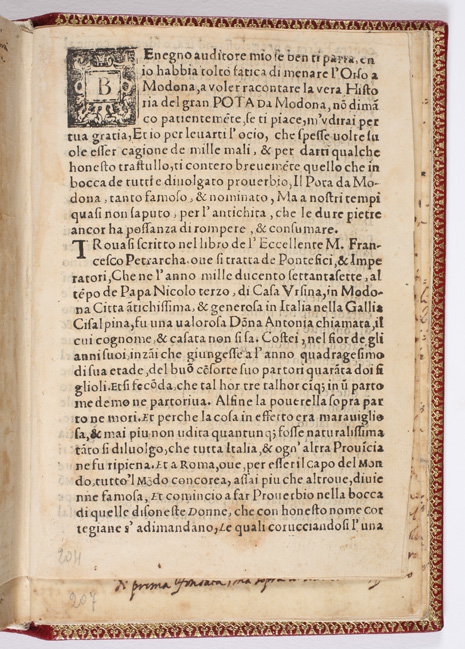 BEnegno auditore mio se ben ti parra, ch
io habbia tolto fatica di menare l'Orso a
Modona, a voler racontare la vera Histo
ria del gran POTA DA Modona, nō dimā
co patientemēte, se ti piace, m'vdirai per
tua gratia, Et io per leuarti l'ocio, che spesse uolte su
ole esser cagione de mille mali, & per darti qualche
honesto trastullo, ti contero breuemēte quello che in
bocca de tutti e diuolgato prouerbio, Il Pota da Mo-
dona, tanto famoso, & nominato, Ma a nostri tempi
quasi non saputo, per l'antichita, che le dure pietre
ancor ha possanza di rompere, & consumare.
TRouasi scritto nel libro de l'Eccellente M. Fran-
cesco Petrarcha. oue si tratta de Pontefici, & Impe
ratori, Che ne l'anno mille ducento settantasette, al
tēpo de Papa Nicolo terzo, di Casa Vrsina, in Modo-
na Citta ātichissima, & generosa in Italia nella Gallia
Cisalpina, fu una ualorosa Dōna Antonia chiamata, il
cui cognome, & casata non si sa. Costei, nel fior de gli
anni suoi, inzāi che giungesse a l'anno quadragesimo
di sua etade, del buō cēsorte suo partori quarāta doi fi
glioli. Et si fecōda, che tal hor tre talhor cīq; in ū parto
me demo ne partoriua. Alfine la pouerella sopra par
to ne mori. Et perche la cosa in effetto era marauiglio
sa, & mai piu non udita quantunq; fosse naturalissima
tāto si diluolgo, che tutta Italia, & ogn'altra Prouīcia
ne fu ripiena. Et a Roma, oue, per esser il capo del Mon
do, tutto'l Mōdo concorea, assai piu che altroue, diuie
nne famosa, Et comincio a far Prouerbio nella bocca
di quelle disoneste Donne, che con honesto nome Cor
tegiane s'adimandano, Le quali corucciandosi l'una
204
207
di prima